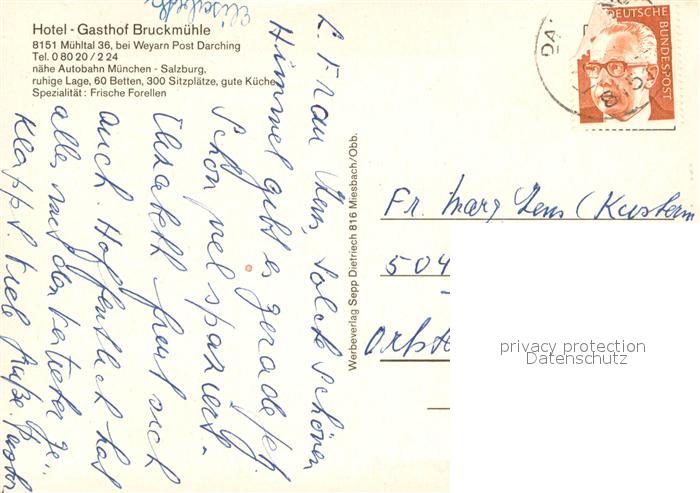 Elisabeth
Hotel - Gasthof Bruckmühle
8151 Mühltal 36, bei Weyarn Post Darching
Tel. 0 80 20 / 2 24
nähe Autobahn München - Salzburg,
ruhige Lage, 60 Betten, 300 Sitzplätze, gute Küche
Spezialität: Frische Forellen
L. Frau Lens, solch schönen
Himmel gibt es gerade jetzt.
Schon viel spaziert.
Elisabeth freut sich
auch. Hoffentlich hat
alles mit der Vertretg. ge-
klappt. Viele Grüße.
Werbeverlag Sepp Dietrich 816 Miesbach/Obb.
DEUTSCHE
BUNDESPOST
Fr. Marg Lens (Küsterin
504
privacy protection
Datenschutz